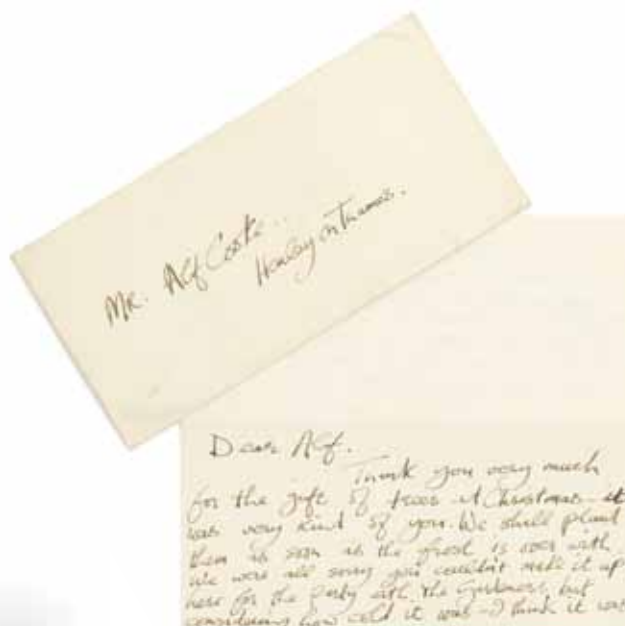 Mr. Alf Coste..
Henley on Thames.
Dear Alf.
Thank you very much
for the gift of trees at Christmas - it
was very kind of you. We shall plant
them as soon as the frost is over with.
We were all sorry you couldn't make it up
here for the party with the Gardeners, but
considering how cold it was - I think it was